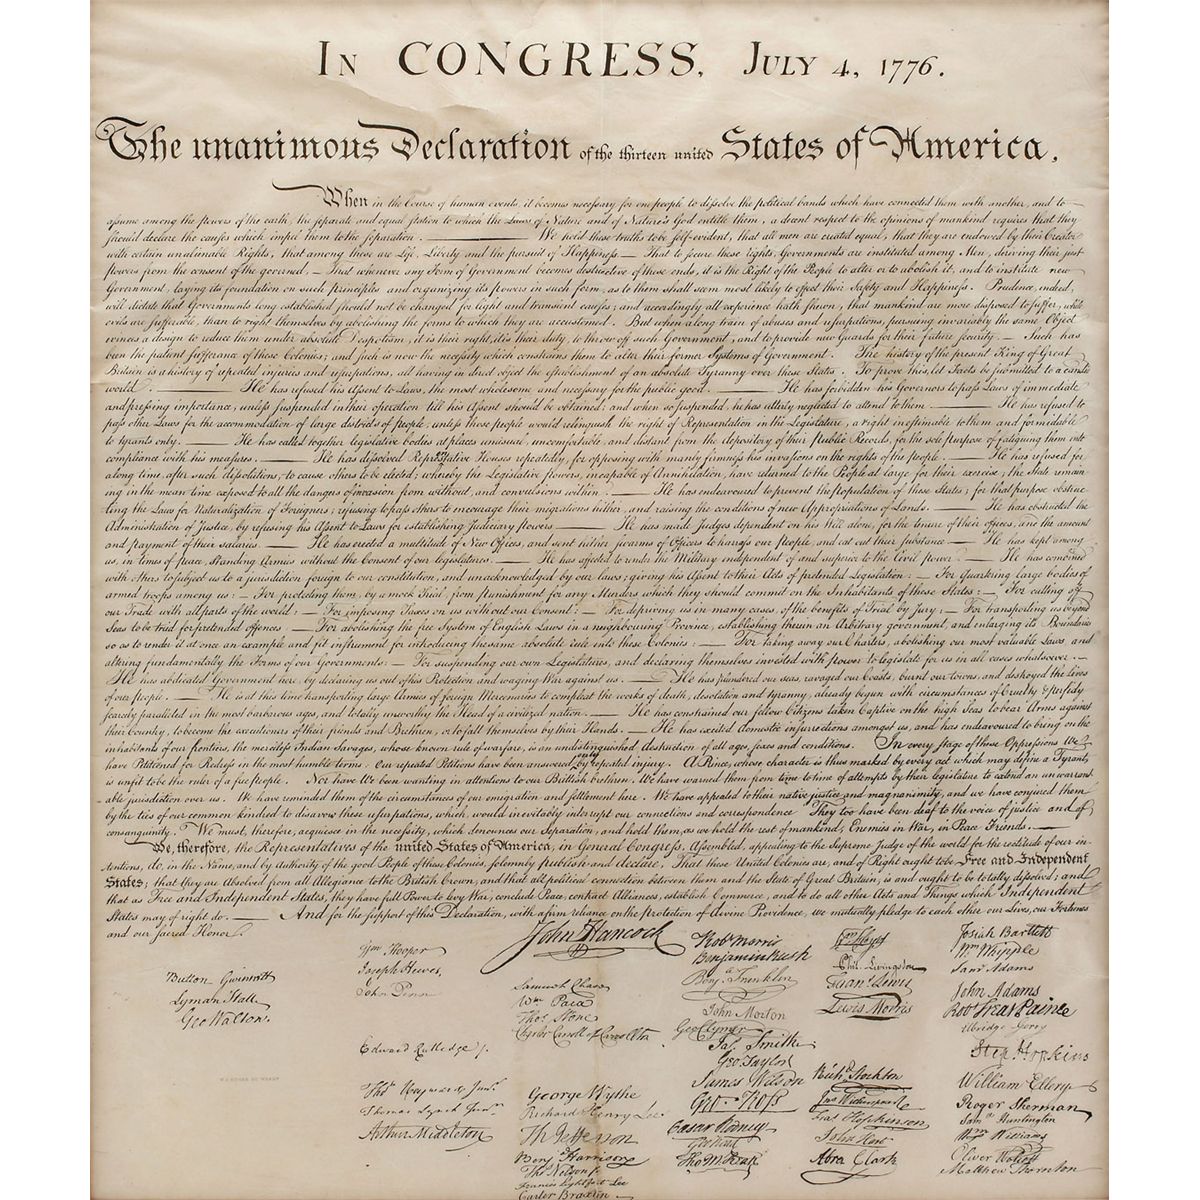 IN CONGRESS, JULY 4, 1776.
The unanimous Declaration of the thirteen united States of America.
When in the Course of human events, it becomes necessary for one people to dissolve the political bands which have connected them with another, and to
assume among the powers of the earth, the separate and equal station to which the Laws of Nature and of Nature's God entitle them, a decent respect to the opinions of mankind requires that they
should declare the causes which impel them to the separation. — We hold these truths to be self-evident, that all men are created equal, that they are endowed by their Creator
with certain unalienable Rights, that among these are Life, Liberty and the pursuit of Happiness — That to secure these rights, Governments are instituted among Men, deriving their just
powers from the consent of the governed, — That whenever any Form of Government becomes destructive of these ends, it is the Right of the People to alter or to abolish it, and to institute new
Government, laying its foundation on such principles and organizing its powers in such form, as to them shall seem most likely to effect their Safety and Happiness. Prudence, indeed,
will dictate that Governments long established should not be changed for light and transient causes; and accordingly all experience hath shewn, that mankind are more disposed to suffer, while
evils are sufferable, than to right themselves by abolishing the forms to which they are accustomed. But when a long train of abuses and usurpations, pursuing invariably the same Object
evinces a design to reduce them under absolute Despotism, it is their right, it is their duty, to throw off such Government, and to provide new Guards for their future security. — Such has
been the patient sufferance of these Colonies; and such is now the necessity which constrains them to alter their former Systems of Government. The history of the present King of Great
Britain is a history of repeated injuries and usurpations, all having in direct object the establishment of an absolute Tyranny over these States. To prove this, let Facts be submitted to a candid
world. — He has refused his Assent to Laws, the most wholesome and necessary for the public good. — He has forbidden his Governors to pass Laws of immediate
and pressing importance, unless suspended in their operation till his Assent should be obtained; and when so suspended, he has utterly neglected to attend to them. — He has refused to
pass other Laws for the accommodation of large districts of people, unless those people would relinquish the right of Representation in the Legislature, a right inestimable to them and formidable
to tyrants only. — He has called together legislative bodies at places unusual, uncomfortable, and distant from the depository of their Public Records, for the sole purpose of fatiguing them into
compliance with his measures. — He has dissolved Representative Houses repeatedly, for opposing with manly firmness his invasions on the rights of the people. — He has refused for
a long time, after such dissolutions, to cause others to be elected; whereby the Legislative powers, incapable of Annihilation, have returned to the People at large for their exercise; the State remain-
ing in the mean time exposed to all the dangers of invasion from without, and convulsions within. — He has endeavoured to prevent the population of these States; for that purpose obstruc-
ting the Laws for Naturalization of Foreigners; refusing to pass others to encourage their migrations hither, and raising the conditions of new Appropriations of Lands. — He has obstructed the
Administration of Justice, by refusing his Assent to Laws for establishing Judiciary powers — He has made Judges dependent on his Will alone, for the tenure of their offices, and the amount
and payment of their salaries. — He has erected a multitude of New Offices, and sent hither swarms of Officers to harrass our people, and eat out their substance — He has kept among
us, in times of peace, Standing Armies without the Consent of our legislatures. — He has affected to render the Military independent of and superior to the Civil power — He has combined
with others to subject us to a jurisdiction foreign to our constitution, and unacknowledged by our laws; giving his Assent to their Acts of pretended Legislation: — For Quartering large bodies of
armed troops among us: — For protecting them, by a mock Trial, from punishment for any Murders which they should commit on the Inhabitants of these States: — For cutting off
our Trade with all parts of the world: — For imposing Taxes on us without our Consent: For depriving us in many cases, of the benefits of Trial by Jury: — For transporting us beyond
Seas to be tried for pretended offences — For abolishing the free System of English Laws in a neighbouring Province, establishing therein an Arbitrary government, and enlarging its Boundaries
so as to render it at once an example and fit instrument for introducing the same absolute rule into these Colonies: — For taking away our Charters, abolishing our most valuable Laws, and
altering fundamentally the Forms of our Governments: — For suspending our own Legislatures, and declaring themselves invested with power to legislate for us in all cases whatsoever. —
He has abdicated Government here, by declaring us out of his Protection and waging War against us. — He has plundered our seas, ravaged our Coasts, burnt our towns, and destroyed the Lives
of our people. — He is at this time transporting large Armies of foreign Mercenaries to compleat the works of death, desolation and tyranny, already begun with circumstances of Cruelty & perfidy
scarcely paralleled in the most barbarous ages, and totally unworthy the Head of a civilized nation. — He has constrained our fellow Citizens taken Captive on the high Seas to bear Arms against
their Country, to become the executioners of their friends and Brethren, or to fall themselves by their Hands. — He has excited domestic insurrections amongst us, and has endeavoured to bring on the
inhabitants of our frontiers, the merciless Indian Savages, whose known rule of warfare, is an undistinguished destruction of all ages, sexes and conditions. In every stage of these Oppressions We
have Petitioned for Redress in the most humble terms: Our repeated Petitions have been answered only by repeated injury. A Prince, whose character is thus marked by every act which may define a Tyrant,
is unfit to be the ruler of a free people. Nor have We been wanting in attentions to our Brittish brethren. We have warned them from time to time of attempts by their legislature to extend an unwarrant-
able jurisdiction over us. We have reminded them of the circumstances of our emigration and settlement here. We have appealed to their native justice and magnanimity, and we have conjured them
by the ties of our common kindred to disavow these usurpations, which, would inevitably interrupt our connections and correspondence They too have been deaf to the voice of justice and of
consanguinity. We must, therefore, acquiesce in the necessity, which denounces our Separation, and hold them, as we hold the rest of mankind, Enemies in War, in Peace Friends. —
We, therefore, the Representatives of the united States of America, in General Congress, Assembled, appealing to the Supreme Judge of the world for the rectitude of our in-
tentions, do, in the Name, and by authority of the good People of these Colonies, solemnly publish and declare, That these United Colonies are, and of Right ought to be Free and Independent
States; that they are Absolved from all Allegiance to the British Crown, and that all political connection between them and the State of Great Britain, is and ought to be totally dissolved; and
that as Free and Independent States, they have full Power to levy War, conclude Peace, contract Alliances, establish Commerce, and to do all other Acts and Things which Independent
States may of right do. — And for the support of this Declaration, with a firm reliance on the protection of divine Providence, we mutually pledge to each other our Lives, our Fortunes
and our sacred Honor.
Button Gwinnett
Lyman Hall
Geo Walton.
Wm Hooper
Joseph Hewes,
John Penn
Edward Rutledge /.
Thos Heyward Junr.
Thomas Lynch Junr.
Arthur Middleton
John Hancock
Samuel Chase
Wm Paca
Thos Stone
Charles Carroll of Carrollton
George Wythe
Richard Henry Lee
Th Jefferson
Benj Harrison
Thos Nelson jr
Francis Lightfoot Lee
Carter Braxton
Robt Morris
Benjamin Rush
Benj Franklin
John Morton
Geo Clymer
Jas Smith
Geo Taylor
James Wilson
Geo. Ross
Caesar Rodney
Geo Read
Tho M:Kean
Wm Floyd
Phil. Livingston
Frans Lewis
Lewis Morris
Richd Stockton
Jno Witherspoon
Fras Hopkinson
John Hart
Abra Clark
Josiah Bartlett
Wm Whipple
Saml Adams
John Adams
Robt Treat Paine
Elbridge Gerry
Step Hopkins
William Ellery
Roger Sherman
Saml Huntington
Wm Williams
Oliver Wolcott
Matthew Thornton